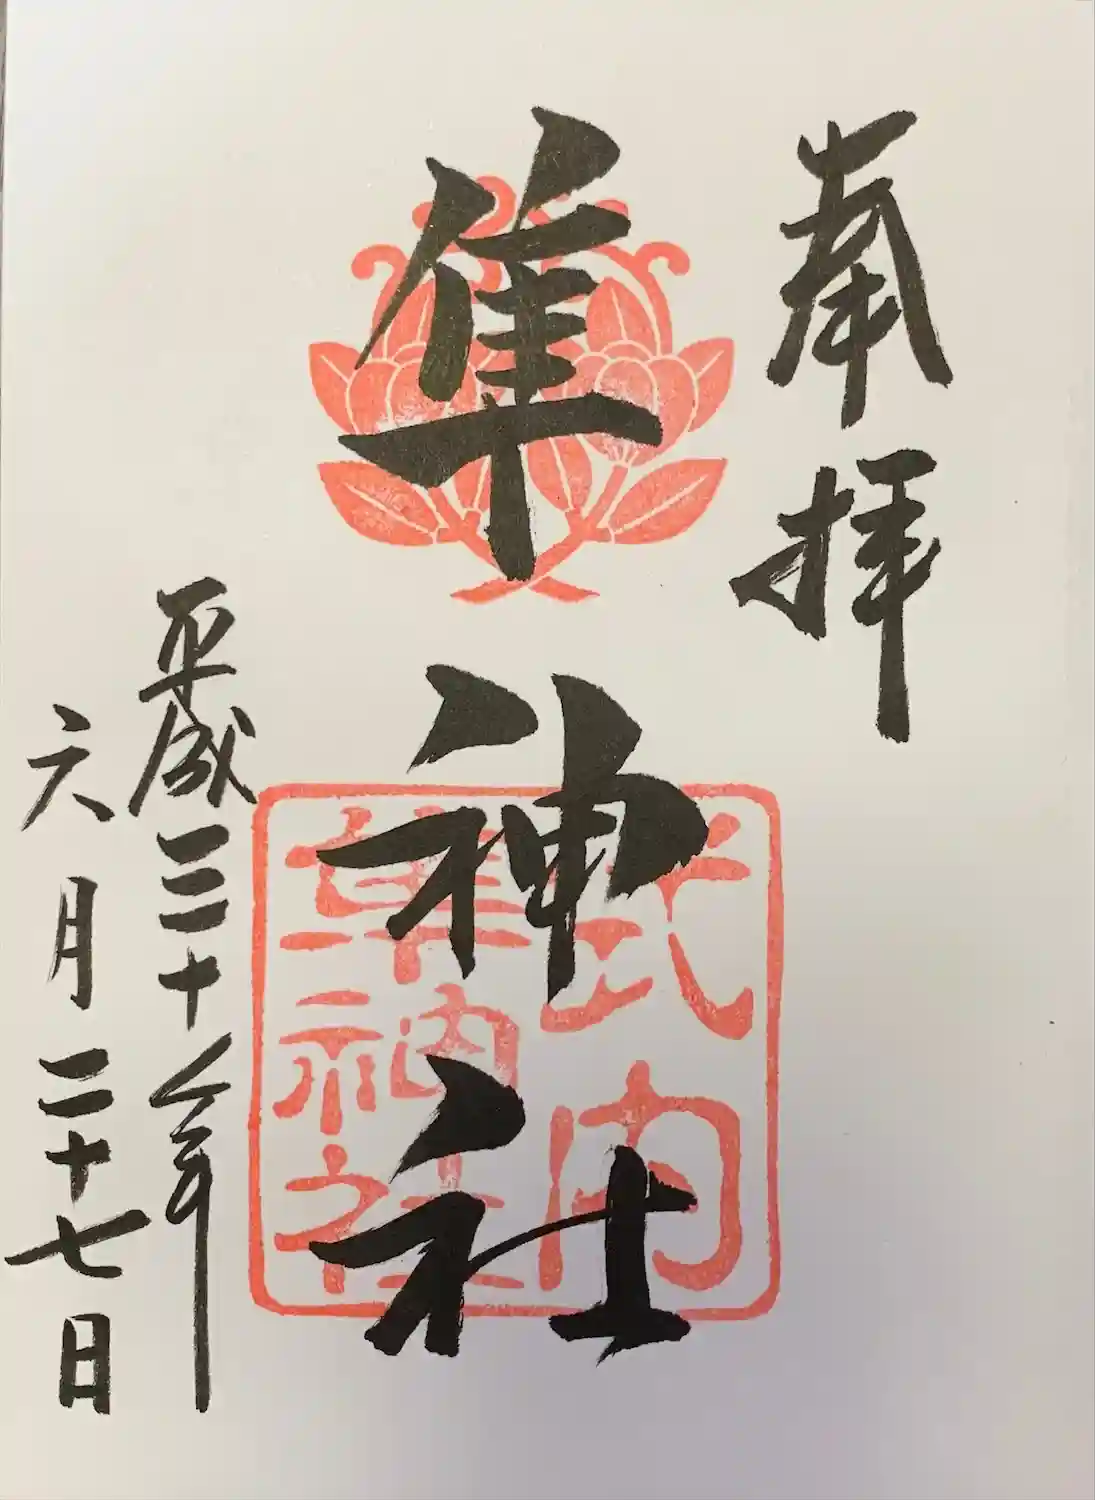 奉拝
隼神社
式内
隼神社
平成三十年
六月二十七日